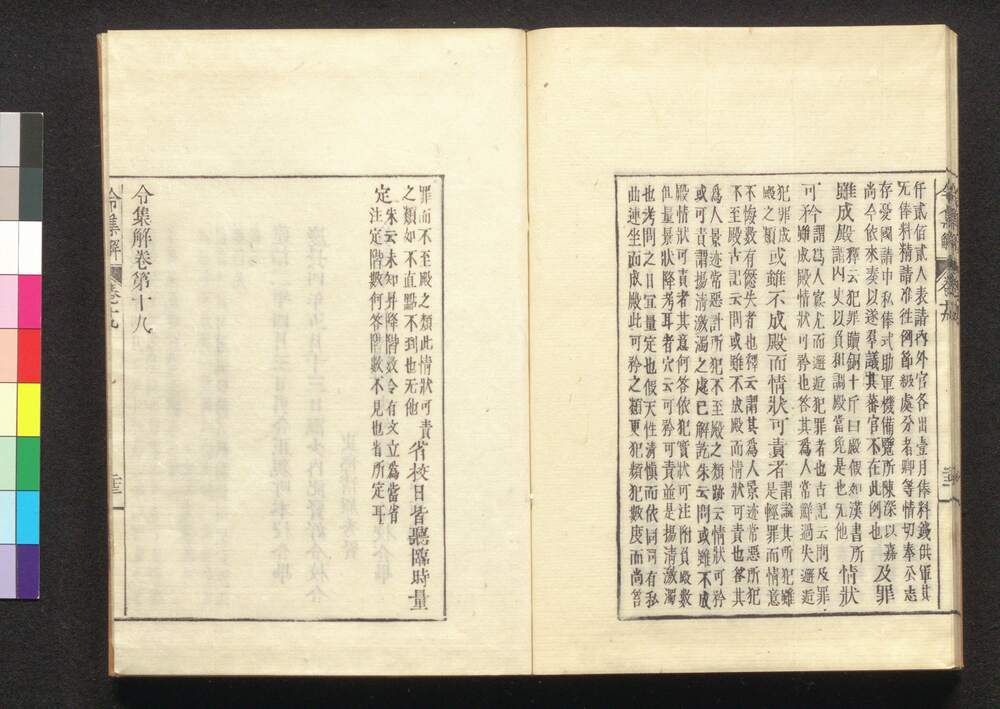 仟貳佰貳人表請內外官各出壹月俸料錢供軍其
无俸料精請准往例節級處分者聊等情切奉公志
存憂國請申私俸式助軍機備覽所陳深以嘉
尚今依來奏以遂羣議其蕃官不在此例也
及罪
雖成殿
釋云犯罪贖銅十斤曰殿假如漢書所
謂內史以負和調殿當免是也无他
情狀
可矜
謂爲人寬尤而邂逅犯罪者也古記云問及罪
雖成殿情狀可矜也答其爲人常鮮過失邂逅
犯罪成
殿之類
或雖不成殿而情狀可責者
謂論其所犯雖
是輕罪而情意
不悛數有愆失者也釋云謂其爲人景迹常惡所犯
不至殿古記云問或雖不成殿而情狀可責也答其
爲人景迹常惡計所犯不至殿之類跡云情狀可矜
或可責謂揚清激濁之處已解訖朱云問或雖不成
殿情狀可責者其意何答依犯實狀可注附負殿數
但量景狀降考耳者穴云可矜可責並是揚清激濁
也考問之日冝量定也假天性清慎而依同司有私
曲連坐而成殿此可矜之類更犯類犯數度而尚笞
罪而不至殿之類此情狀可責
之類如不直點不到也无他
省校日皆聽臨時量
定
朱云未知昇降階數令有文立爲當省
注定階數何答階數不見也省所定耳
令集解卷第十九
令集解
卷十九